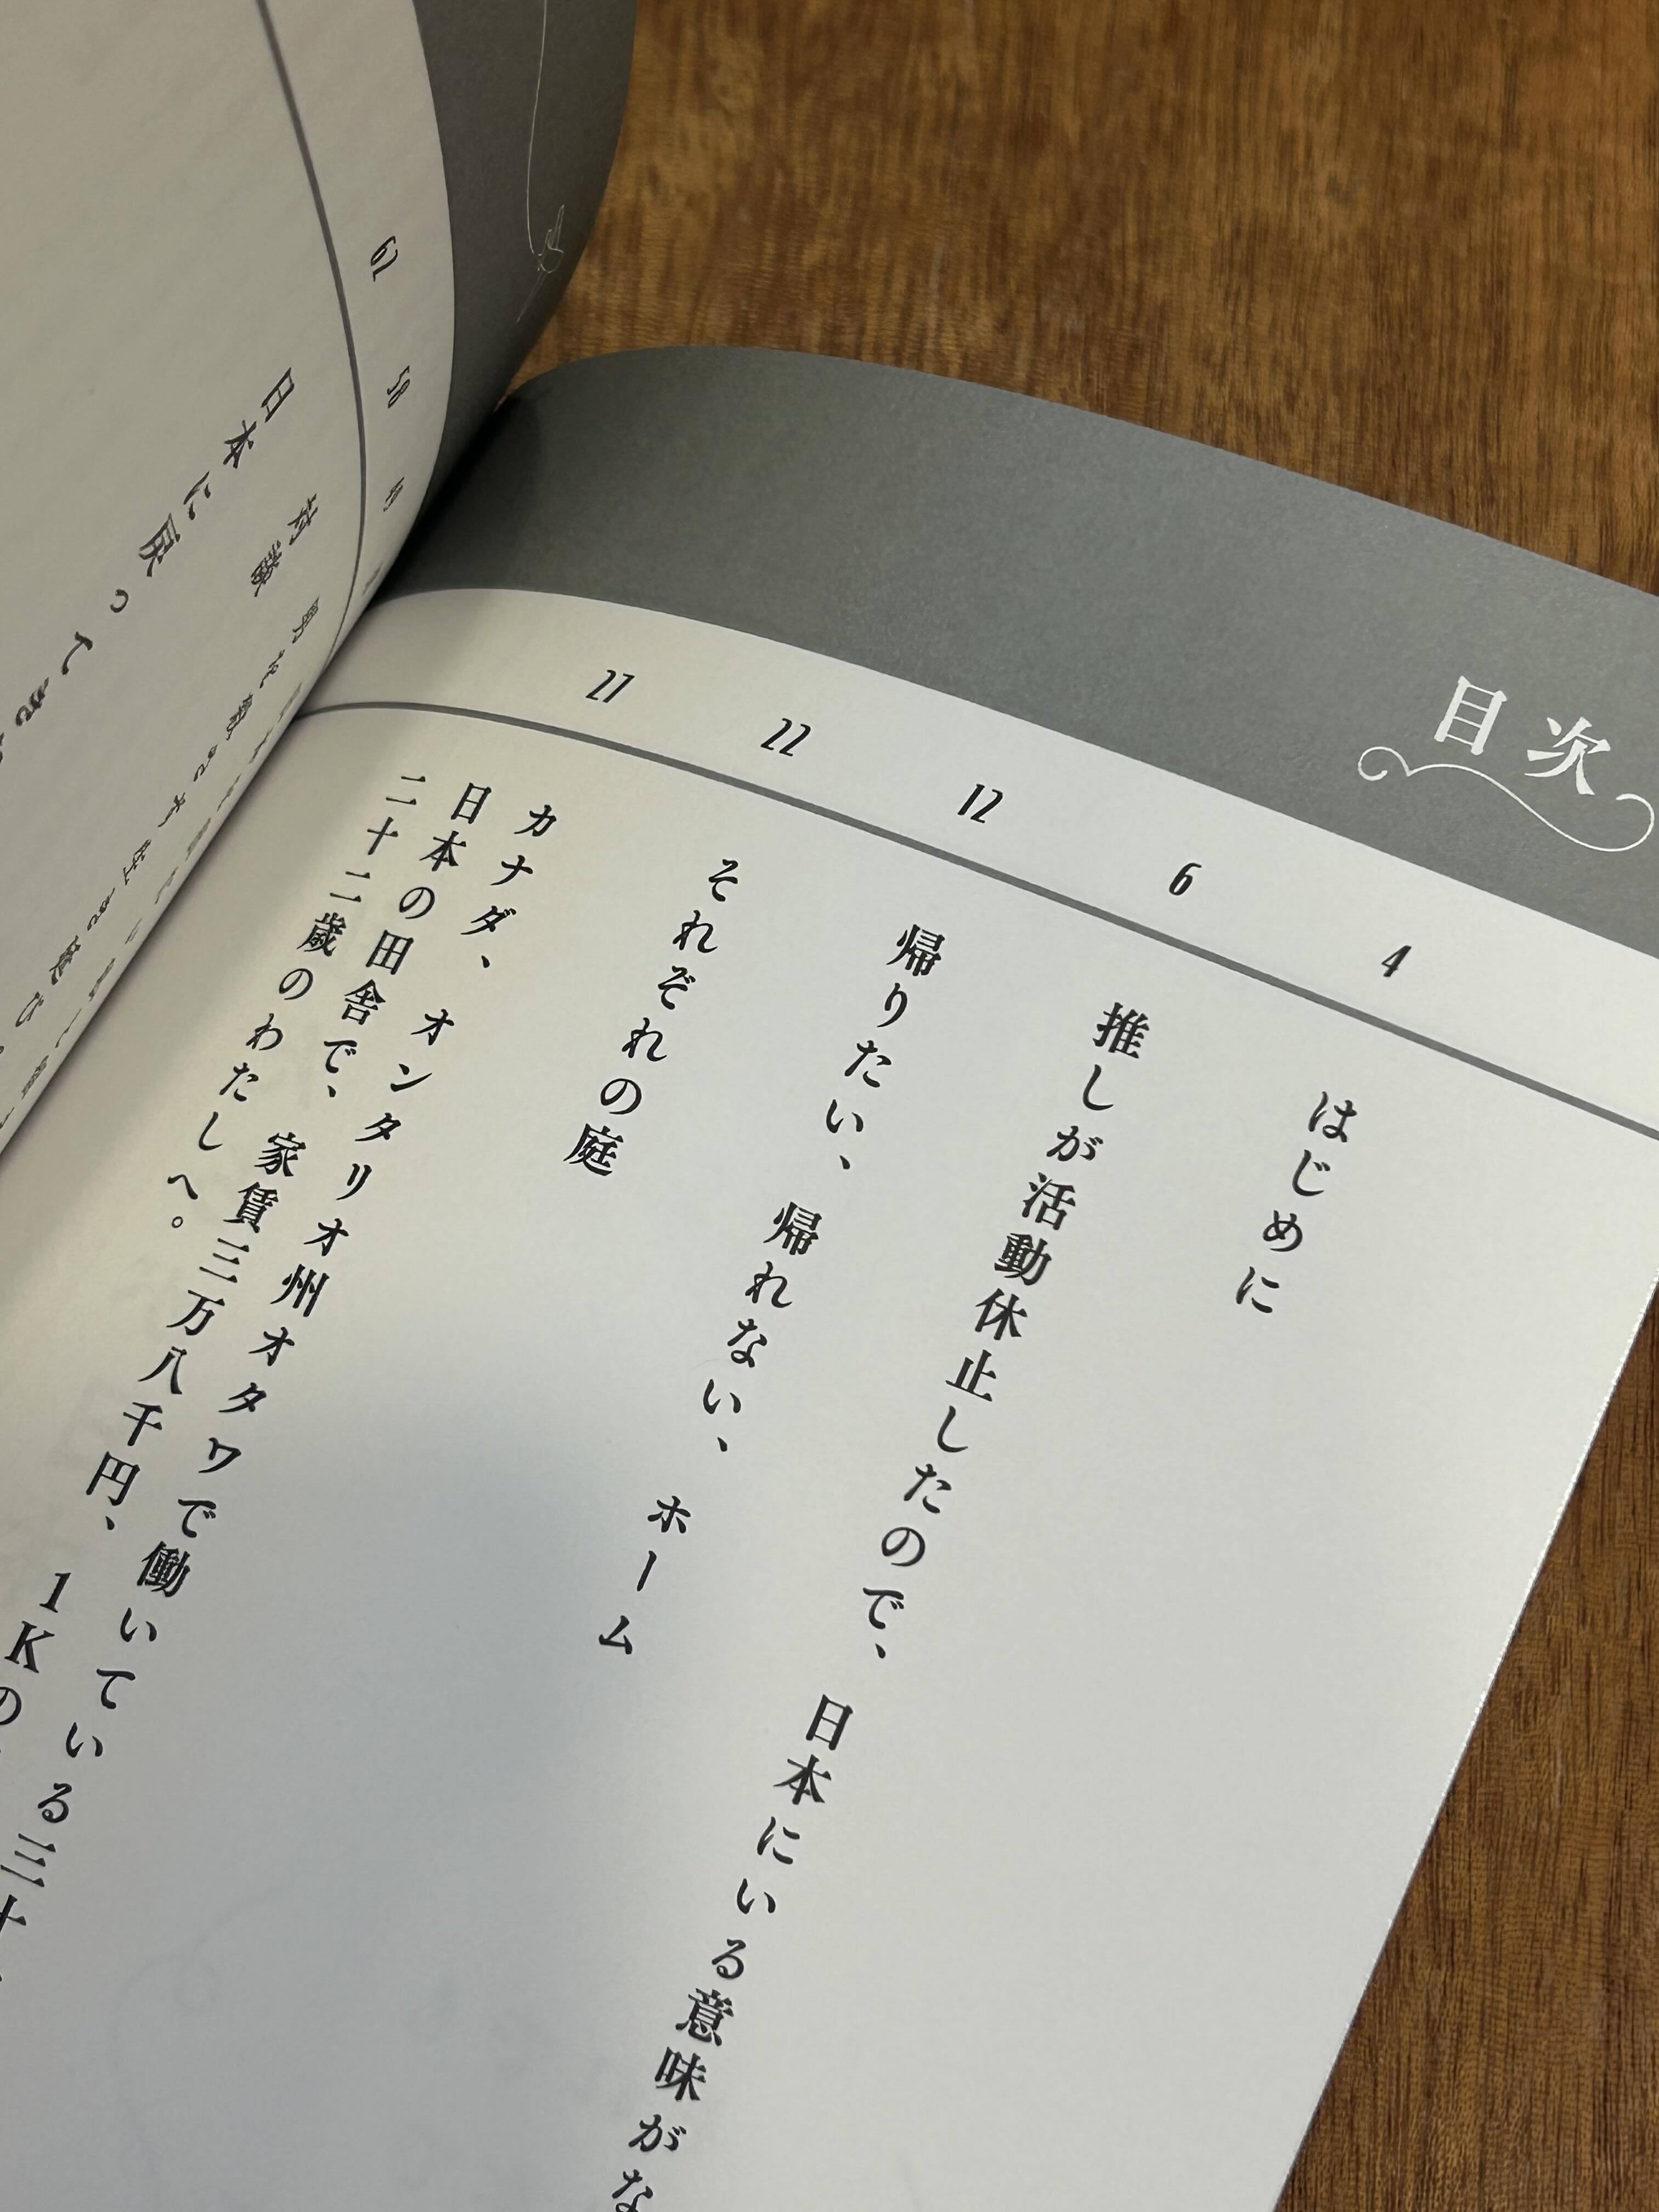 目次
4
はじめに
6
推しが活動休止したので、日本にいる意味がな
12
帰りたい、帰れない、ホーム
22
それぞれの庭
27
カナダ、オンタリオ州オタワで働いている三十
日本の田舎で、家賃三万八千円、1Kの
二十二歳のわたしへ。
58
対談
日本に戻ってき